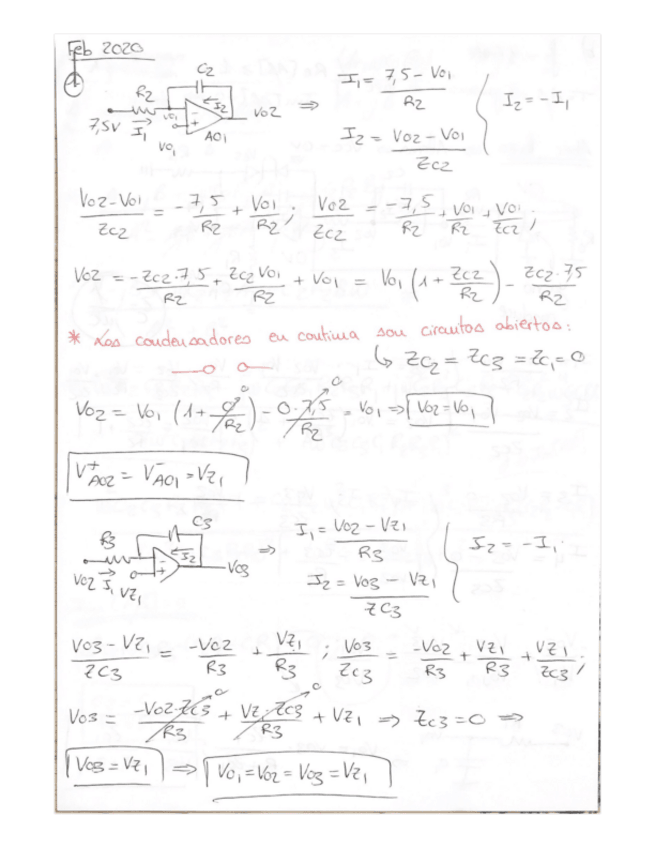 Feb 2020
1
C2
R2
I2
7,5V I1 Vo1 AO1 Vo2
⇒ I1 = (7,5 - Vo1)/R2
I2 = (Vo2 - Vo1)/Zc2
I2 = -I1
(Vo2 - Vo1)/Zc2 = -7,5/R2 + Vo1/R2 ; Vo2/Zc2 = -7,5/R2 + Vo1/R2 + Vo1/Zc2 ;
Vo2 = -Zc2·7,5/R2 + Zc2 Vo1/R2 + Vo1 = Vo1 (1 + Zc2/R2) - Zc2·7,5/R2
* Los condensadores en continua son circuitos abiertos:
↳ Zc2 = Zc3 = Zc1 = 0
Vo2 = Vo1 (1 + 0/R2) - 0·7,5/R2 = Vo1 ⇒ Vo2 = Vo1
V+AO2 = V-AO1 = Vz1
C3
R3
I2
Vo2 I1 Vz1 Vo3
⇒ I1 = (Vo2 - Vz1)/R3
I2 = (Vo3 - Vz1)/Zc3
I2 = -I1;
(Vo3 - Vz1)/Zc3 = -Vo2/R3 + Vz1/R3 ; Vo3/Zc3 = -Vo2/R3 + Vz1/R3 + Vz1/Zc3 ;
Vo3 = -Vo2·Zc3/R3 + Vz·Zc3/R3 + Vz1 ⇒ Zc3 = 0 ⇒
Vo3 = Vz1 ⇒ Vo1 = Vo2 = Vo3 = Vz1